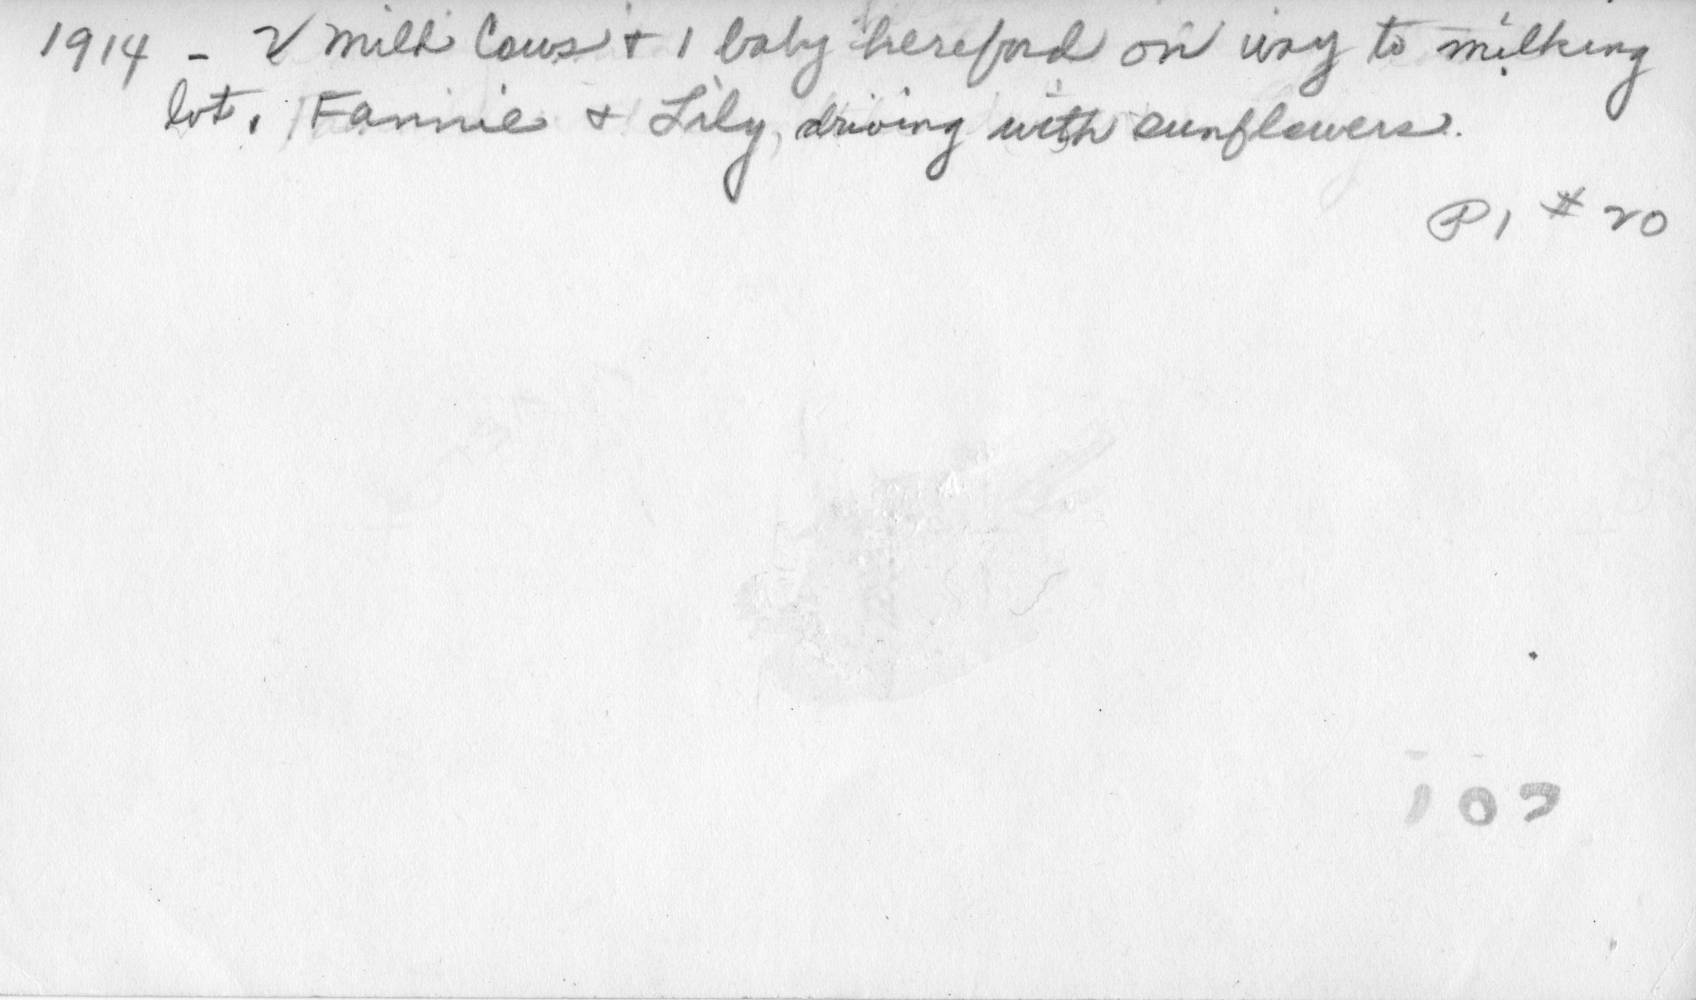 1914 - 2 milk Cows + 1 baby hereford on way to milking
lot. Fannie + Lily, driving with sunflowers.
P1 # 20
102